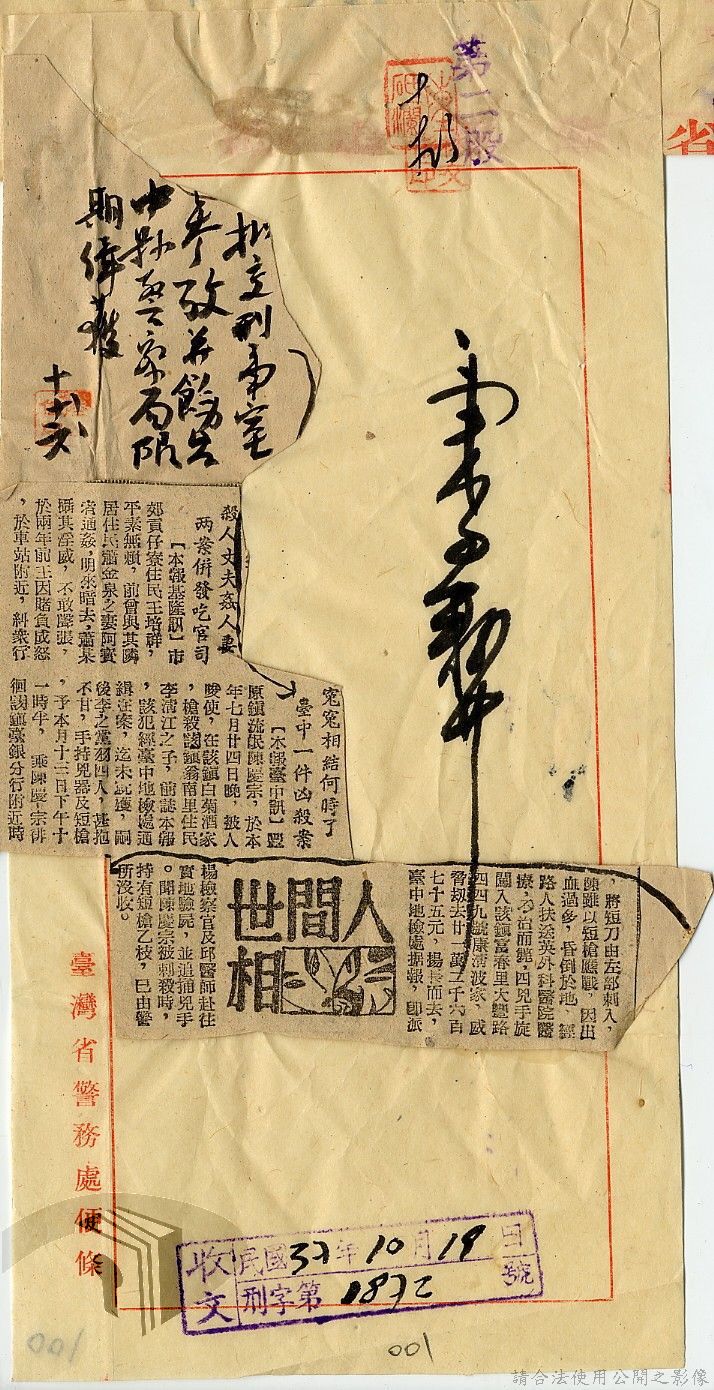 第二股
省
批交刑事室
參考并飭台
中縣警察局限
期緝獲
殺人丈夫姦人妻
兩案併發吃官司
【本報基隆訊】市
郊貢仔寮住民王培祥，
平素無賴，前曾與其隣
居住民蕭金泉之妻阿寶
通姦，明來暗去，蕭某
懾其淫威，不敢聲張，
於兩年前王因賭負成怒
，於車站附近，糾衆行
寃寃相結何時了
臺中一件凶殺案
【本報臺中訊】豐
原鎮流氓陳慶宗，於本
年七月廿四日晚，被人
唆使，在該鎮白菊酒家
，槍殺該鎮翁南里住民
李清江之子，前誌本報
，該犯經臺中地檢處通
緝在案，迄未訊獲，嗣
後李之黨羽四人，甚抱
不甘，手持兇器及短槍
，予本月十三日下午十
一時半，乘陳慶宗徘
徊該鎮臺銀分行附近時
，將短刀由左部刺入，
陳雖以短槍應戰，因出
血過多，昏倒於地，經
路人扶送英外科醫院醫
療，不治而斃，四兇手旋
闖入該鎮富春里大豐路
四四九號康清波家，威
脅劫去廿一萬二千六百
七十五元，揚長而去，
臺中地檢處據報，即派
世間人相
楊檢察官及邱醫師赴往
實地驗屍，並追捕兇手
。聞陳慶宗被刺殺時，
持有短槍乙枝，已由警
所沒收。
臺灣省警務處便條
收文
民國37年10月19日
刑字第1872號
001
001
請合法使用公開之影像